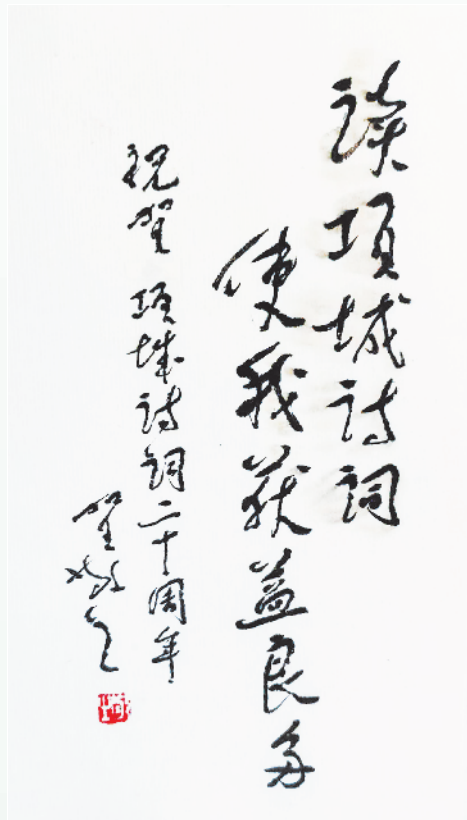 读项城诗词
使我获益良多
祝贺 项城诗词二十周年
贺敬之